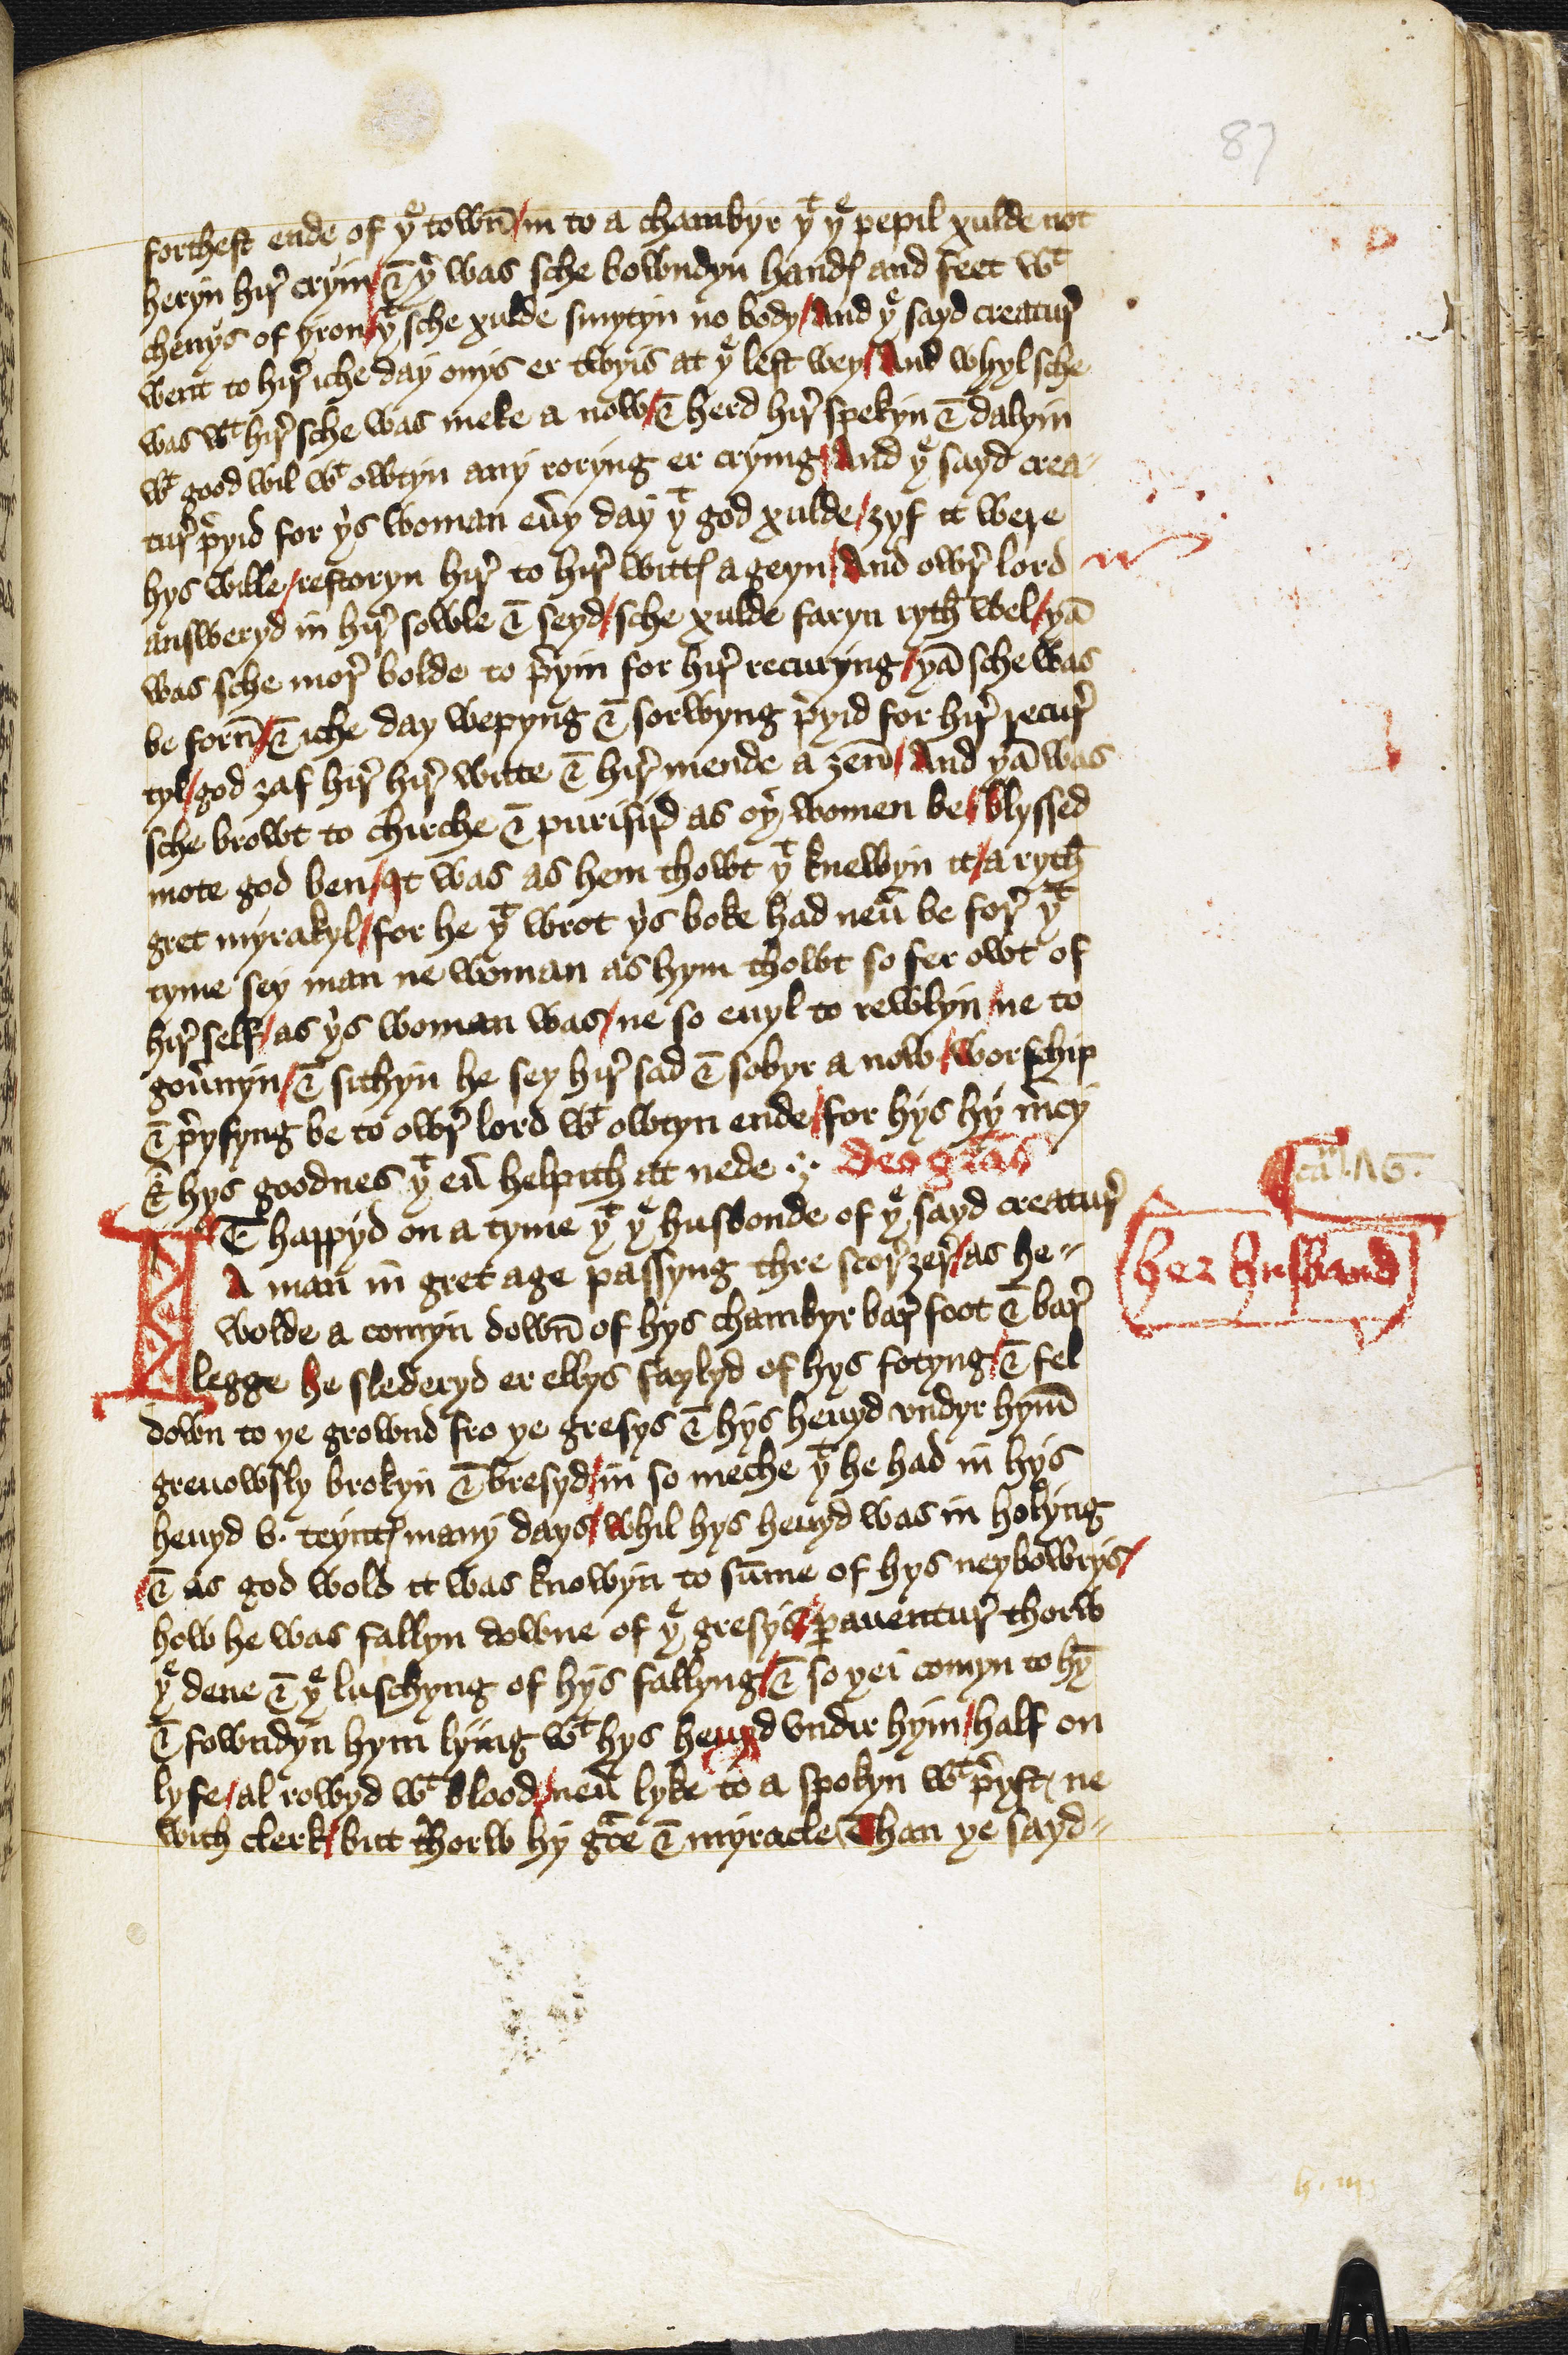 87
fortheſt ende of yͤ town̄ / in to a chambyr yͭ yͤ pepil xulde not
heryn hir̛ cryin / & yͬ was sche bowndyn handꝭ and feet wͭ
chenys of yron / yͭ sche xulde smytyn no body / And yͤ sayd creatur̛
went to hir̛ iche day onys er twyis at yͤ leſt wey / And whyl sche
was wͭ hir̛ sche was meke a now / & herd hir̛ spekyn & dalyin
wͭ good wil wͭ owtyn any roryng er crying / And yͤ sayd crea-
tur̛ p̛yid for yͥs woman eưy day yͭ god xulde / ȝyf it were
hys wille / reſtoryn hir̛ to hir̛ wittꝭ a geyn / And owr̛ lord
answeryd in hir̛ sowle & seyd / sche xulde faryn ryth wel / yā
was sche mor̛ bolde to p̛yin for hir̛ recuryng / yā sche was
be forn̄ / & iche day wepyng & sorwyng p̛yid for hir̛ recur̛
tyl / god ȝaf hir̛ hir̛ witte & hir̛ mende a ȝen̄ / And yā was
sche browt to chirche & purifijd as oyͬ women be / blyssed
mote god ben / It was as hem thowt yͭ knewyn it / a ryth
gret myrakyl / for he yͭ wrot yͥs boke had neư be for̛ yͭ
tyme sey man ne woman as hym thowt so fer owt of
hir̛ self / as yͥs woman was / ne so euyl to rewlyn / ne to
goưnyn / & sithyn he sey hir̛ sad & sobyr a now / worschip
& p̛ysyng be to owr̛ lord wͭ owtyn ende / for hys hy m̛cy
& hys goodnes yͭ eư helpith at nede Deo gr̄as
cam̄ .76.
IT happyd on a tyme yͭ yͤ husbonde of yͤ sayd creatur̛
A man in gret age passyng thre scor̛ ȝer̛ / as he-
her husband
wolde a comyn down̄ of hys chambyr bar̛ foot & bar̛
legge he slederyd er ellys faylyd of hys fotyng / & fel
down to ye grownd fro ye gresys & hys heuyd vndyr hym̄
greuowsly brokyn & bresyd / in so meche yͭ he had in hys
heuyd v. teyntꝭ many days / whil hys heuyd was in holyng
& as god wold it was knowyn to sūme of hys neybowrys /
how he was fallyn downe of yͤ gresys / ꝑauentur̛ thorw
yͤ dene & yͤ luschyng of hys fallyng / & so yei comyn to hȳ
& fowndyn hym lying wͭ hys heuyd vndir hym / half on
lyfe / al rowyd wͭ blood / neư lyke to a spokyn wͭ p̛yſtꝭ ne
with clerk / but thorw hy gr̄ce & myracle / Than ye sayd-
h . iij